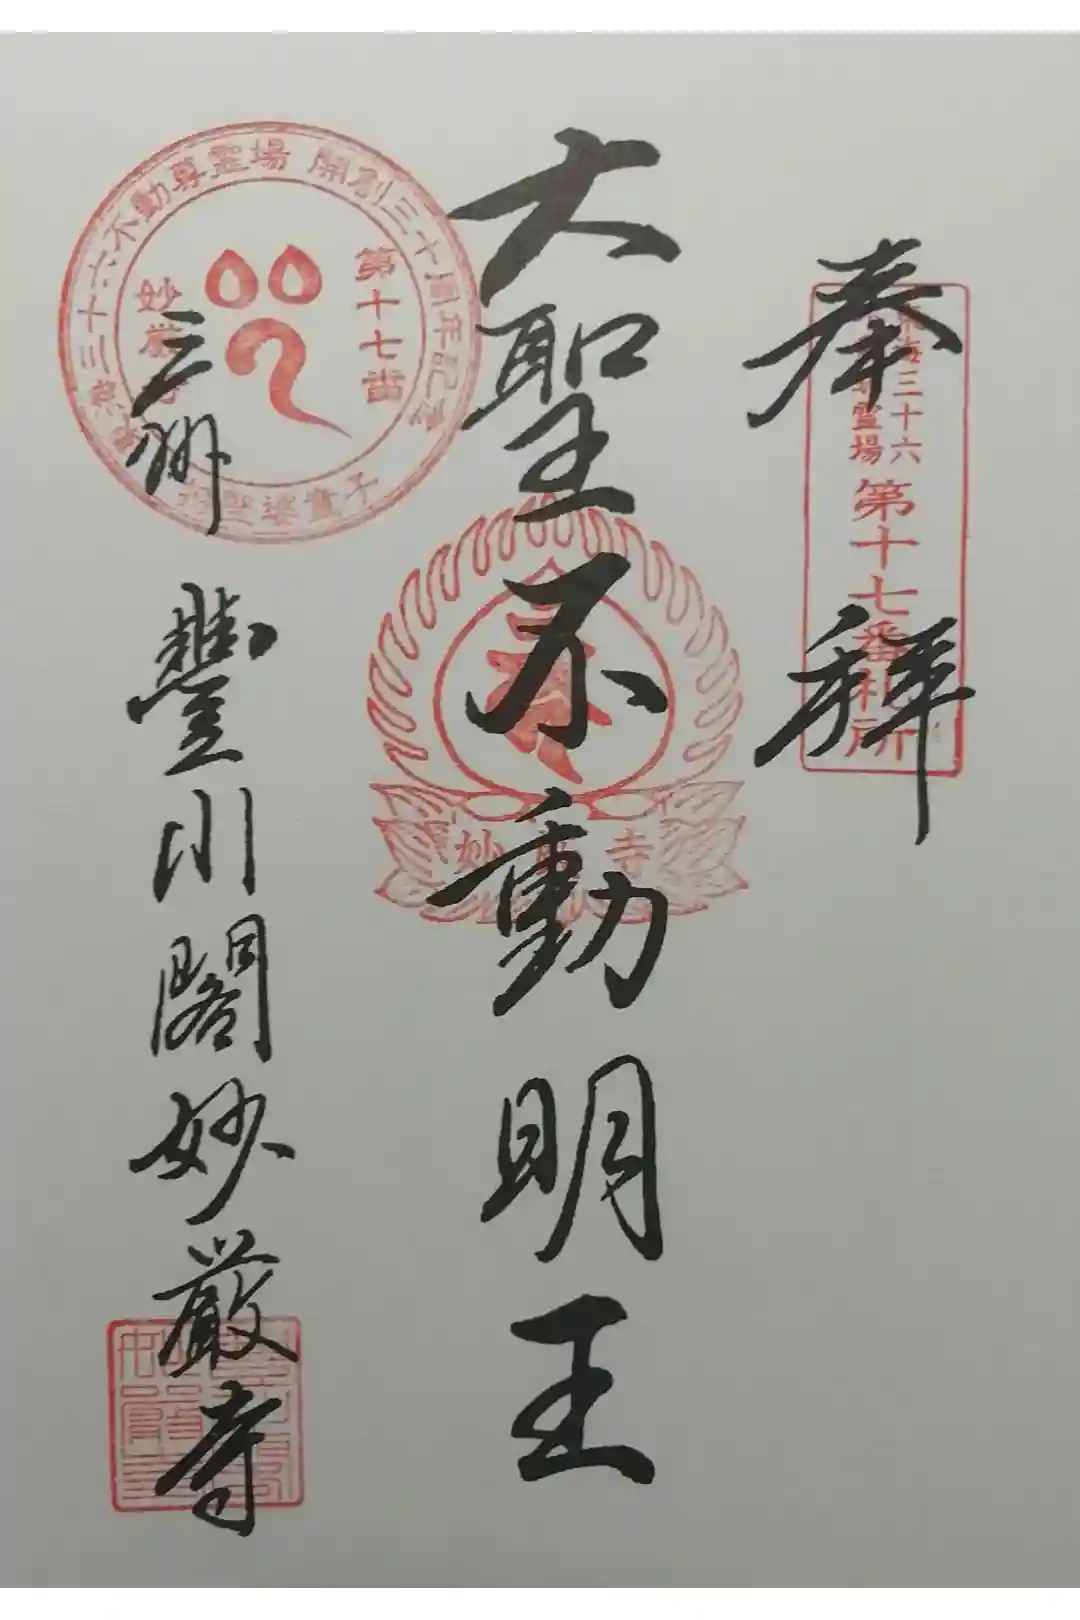 奉拝
三十六
霊場
第十七番札所
大聖不動明王
妙
寺
三十六不動尊霊場 開創三十周年記念
第十七番
妙
童子
三州
豐川閣妙厳寺